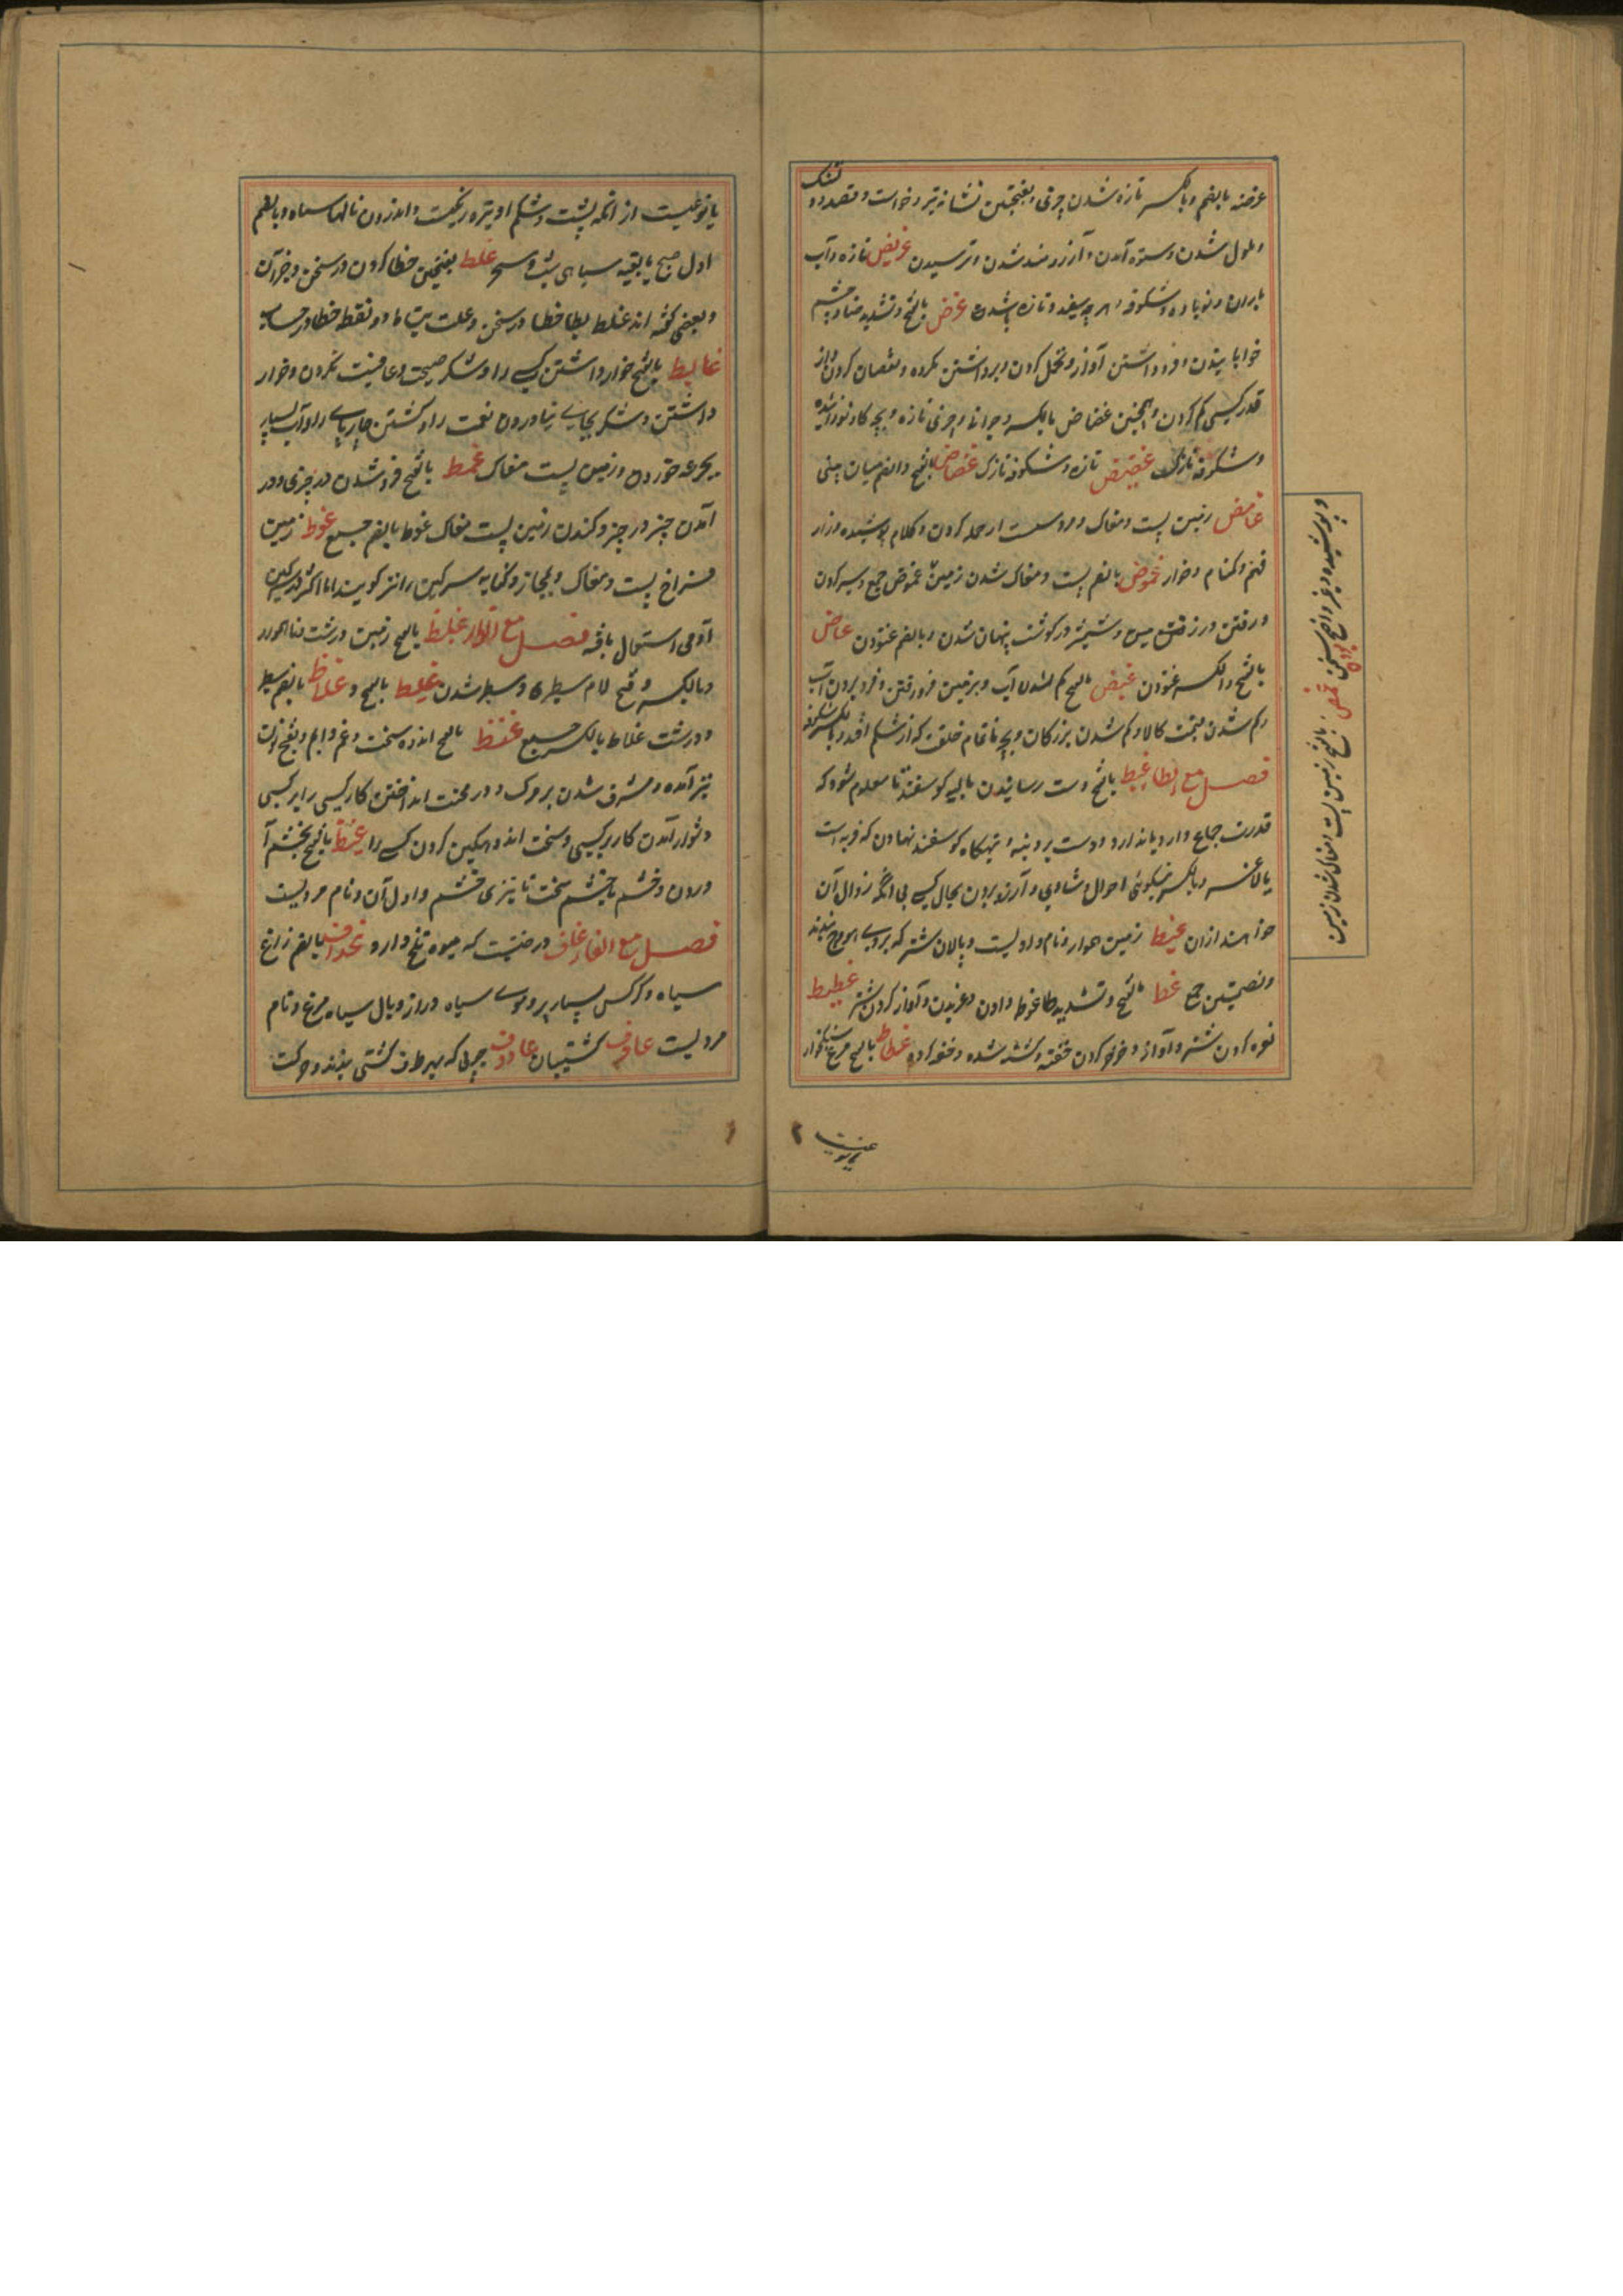 غرضه بالضم و بالکسر تازه شدن چیزی و بفتحتین نشانه تیر و خواست و قصد و دلتنک
و ملول شدن و ستوه آمدن و آرزومند شدن و ترسیدن غریض تازه و آب
باران و نوباوه و شکوفه و هر چه سفید و تازه باشد غض بالفتح و تشدید ضاد چشم
خوابانیدن و فرو داشتن آواز و تحمل کردن و برداشتن مکروه و نقصان کردن و از
قدر کسی کم کردن و همچنین غضاض بالکسر و جوانی و چیزی تازه و بچه کاو نوزائیده
و شکوفه نازک غضیض تازه و شکوفه نازک غضاض بالفتح و الضم میان بینی
غامض زمین پست و مغاک و مرد سست از حمله کردن و کلام پوشیده و زار
فهم و کمنام و خوار غموض بالضم پست و مغاک شدن زمین غموض جمع و سیر کردن
و رفتن در زمین و شمشیر در کوشت پنهان شدن و بالضم غنودن غماض
بالفتح و الکسر غنودن غیض بالفتح کم شدن آب و بزمین فرو رفتن و فرو بردن آب
و کم شدن قیمت کالا و کم شدن بزرکان و بچه ناتمام خلقت که از شکم افتد و بالکسر شکوفه
فصل مع الطاء غبط بالفتح دست رسانیدن بالیه کوسفند تا معلوم شود که
قدرت جماع دارد یا ندارد و دست بر دنبه و تهیکاه کوسفند نهادن که فربه است
یا لاغر و بالکسر نیکوئی احوال و شادی و آرزو بردن بحال کسی بی آنکه زوال آن
خواهند از آن غبیط زمین هموار و نام وادیست و پالان شتر که بروی هودج بندند
و بضمتین جمع غط بالفتح و تشدید طا غوطه دادن و غریدن و آواز کردن شتر غطیط
نعره کردن شتر و آواز و خرخر کردن خفته و کشته شده و خفه کرده غطاط بالفتح مرغ سنکخوار
و پوشیده و غیر واضح کردن سخن غمض بالفتح زمین پست و مغاک شدن زمین
یا نوعیست از انکه پشت و شکم او تیره رنکست و اندرون بالها سیاه و بالضم
اول صبح یا بقیه سیاهی شب و سحر غلط بفتحتین خطا کردن در سخن و جز آن
و بعضی کفته اند غلط بطا خطا در سخن و غلت بتا دو نقطه خطا در حساب
غمط بالفتح خوار داشتن کسی را و شکر صحت و عافیت نکردن و خوار
داشتن و شکر بجای نیاوردن نعمت را و کشتن چارپای را و آب بسیار
بیک جرعه خوردن و زمین پست مغاک غمط بالفتح فرو شدن در چیزی و در
آمدن چیز در چیز و کندن زمین پست مغاک غوط بالضم جمع غوط زمین
فراخ پست و مغاک و بمجاز و کنایه سرکین را نیز کویند اما اکثر در سرکین
آدمی استعمال یافته فصل مع الظاء غلظ بالفتح زمین درشت ناهموار
و بالکسر و فتح لام سطبری و سطبر شدن غلیظ بالفتح و غلاظ بالضم سطبر
و درشت غلاظ بالکسر جمع غنظ بالفتح اندوه سخت و غم دایم و بفتح نون
نیز آمده و مشرف شدن بر مرک و در محنت انداختن کار کسی را بر کسی
دشوار آمدن کار بر کسی و سخت اندوهکین کردن کسی را غیظ بالفتح بخشم آ
وردن و خشم یا خشم سخت یا تیزی خشم و اول آن و نام مردیست
فصل مع الفاء غاف درختیست که میوه تلخ دارد غداف بالضم زاغ
سیاه و کرکس بسیار پر و موی سیاه دراز و بال سیاه مرغ و نام
مردیست غادف کشتیبان غادوف چوبی که بهر طرف کشتی بندند و حرکت